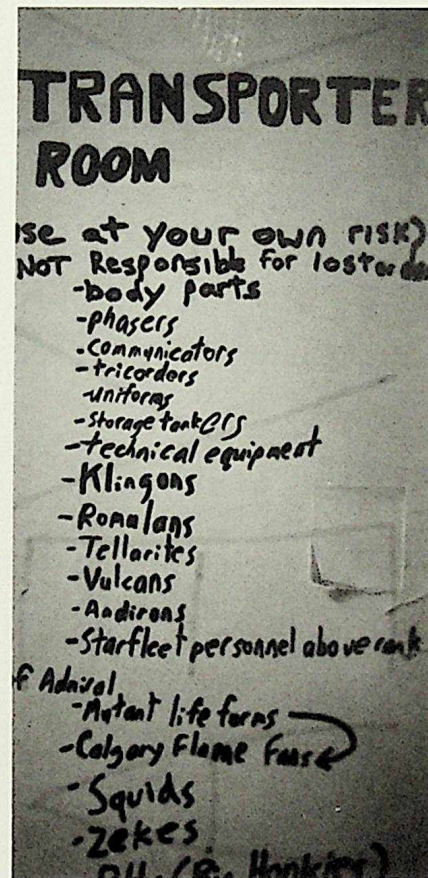 TRANSPORTER
ROOM
use at your own risk)
NOT Responsible for lost or
-body parts
-phasers
-communicators
-tricorders
-uniforms
-storage tankers
-technical equipment
-Klingons
-Romulans
-Tellarites
-Vulcans
-Andirons
-Starfleet personnel above rank
of Admiral
-Mutant life forms
-Calgary Flame Fans
-Squids
-Zekes